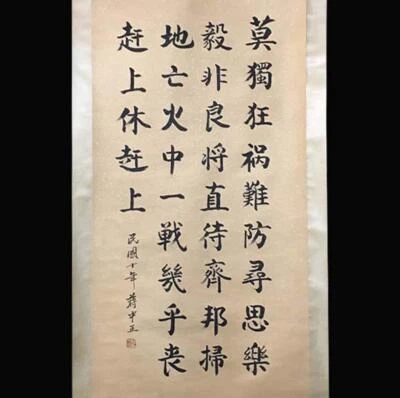 莫獨狂禍難防尋思樂
毅非良將直待齊邦掃
地亡火中一戰幾乎喪
赶上休赶上
民國十年 蔣中正